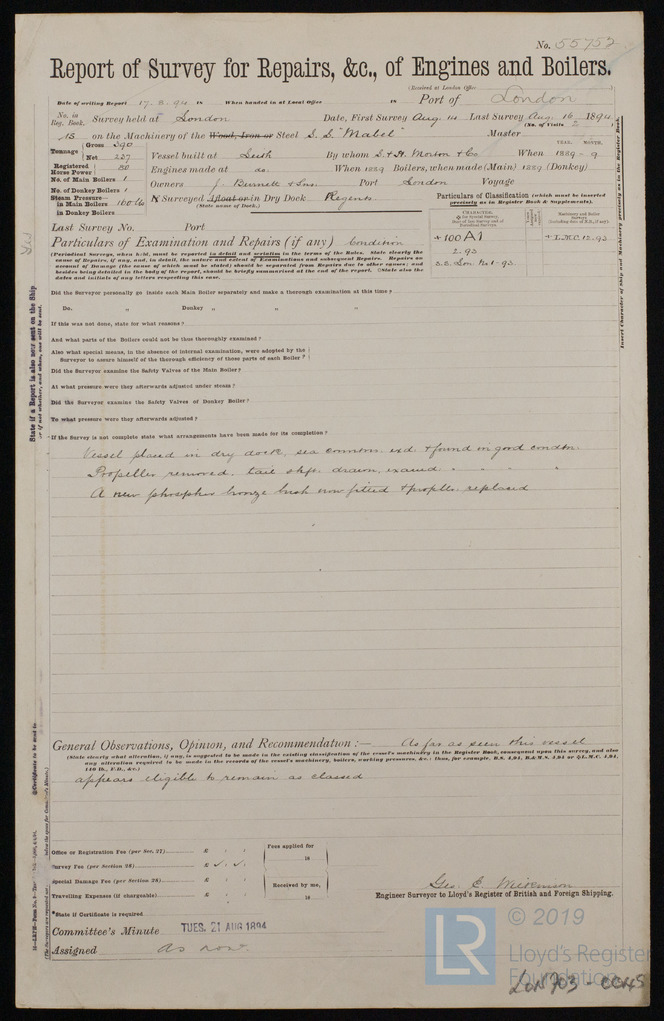 No. 55752
Report of Survey for Repairs, &c., of Engines and Boilers.
(Received at London Office
Date of writing Report 17. 8. 94 18 When handed in at Local Office 18 Port of London
No. in Reg. Book. Survey held at London Date, First Survey Aug. 14 Last Survey Aug. 16 1894
(No. of Visits 2)
15 on the Machinery of the Wood, Iron or Steel S. S. "Mabel" Master
Tonnage Gross 390
Net 237
Vessel built at Leith By whom S. & H. Morton & Co When 1889 - 9
YEAR. MONTH.
Registered Horse Power 80
Engines made at do. When 1889 Boilers, when made (Main) 1889 (Donkey)
No. of Main Boilers 1
No. of Donkey Boilers 1
Owners J. Burnett & Sons. Port London Voyage
Steam Pressure in Main Boilers 160 lb
in Donkey Boilers
If Surveyed Afloat or in Dry Dock Regents.
(State name of Dock.)
Particulars of Classification (which must be inserted precisely as in Register Book & Supplements).
CHARACTER.
Machinery and Boiler Surveys
+100 A1
2.93
S.S. Lon. No 1-93
+L.M.C. 12.93
Last Survey No. Port
Particulars of Examination and Repairs (if any) Condition
(Periodical Surveys, when held, must be reported in detail and seriatim in the terms of the Rules. State clearly the cause of Repairs, if any, and, in detail, the nature and extent of Examinations and subsequent Repairs. Repairs on account of Damage (the cause of which must be stated) should be separated from Repairs due to other causes; and besides being detailed in the body of the report, should be briefly summarised at the end of the report. State also the dates and initials of any letters respecting this case.
Did the Surveyor personally go inside each Main Boiler separately and make a thorough examination at this time?
Do. " Donkey " " "
If this was not done, state for what reasons?
And what parts of the Boilers could not be thus thoroughly examined?
Also what special means, in the absence of internal examination, were adopted by the Surveyor to assure himself of the thorough efficiency of those parts of each Boiler?
Did the Surveyor examine the Safety Valves of the Main Boiler?
At what pressure were they afterwards adjusted under steam?
Did the Surveyor examine the Safety Valves of Donkey Boiler?
To what pressure were they afterwards adjusted?
If the Survey is not complete state what arrangements have been made for its completion?
Vessel placed in dry dock, sea connctons exd. & found in good condtn.
Propeller removed. tail shft. drawn, examd " " " "
A new phosphor bronze bush now fitted & propllr. replaced
General Observations, Opinion, and Recommendation:— As far as seen this vessel
(State clearly what alteration, if any, is suggested to be made in the existing classification of the vessel's machinery in the Register Book, consequent upon this survey, and also any alteration required to be made in the records of the vessel's machinery, boilers, working pressures, &c.: thus, for example, B.S. 4,94, B.&M.S. 4,94 or L.M.C. 4,94, 140 lb., F.D., &c.)
appears eligible to remain as classed
Office or Registration Fee (per Sec. 27) £ : :
Survey Fee (per Section 28) £
Special Damage Fee (per Section 28) £ : :
Travelling Expenses (if chargeable) £ : :
Fees applied for
18
Received by me,
18
*State if Certificate is required
Geo. C. Wilkinson
Engineer Surveyor to Lloyd's Register of British and Foreign Shipping.
Committee's Minute TUES. 21 AUG 1894
Assigned as now.
State if a Report is also now sent on the Ship
or if not whether, and when, one will be sent.
Insert Character of Ship and Machinery precisely as in the Register Book.
LR
© 2019
Lloyd's Register
Foundation
LON703-0045